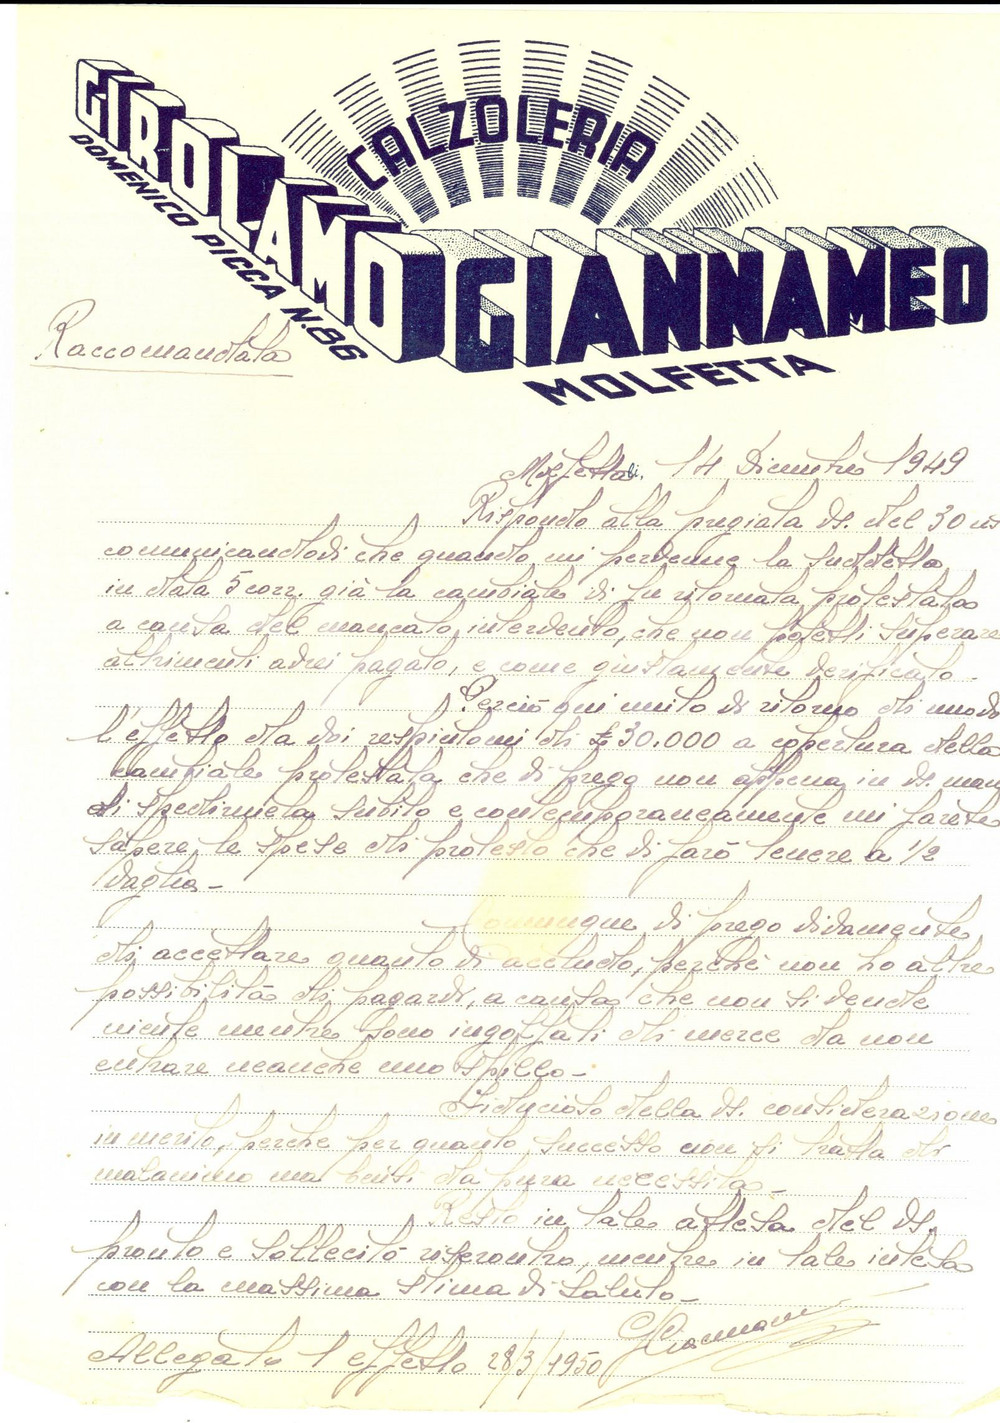 CALZOLERIA
GIROLAMO GIANNAMEO
DOMENICO PICCA N.86
MOLFETTA
Raccomandata
Molfetta li, 14 Dicembre 1949
Rispondo alla pregiata Vs. del 30 us
comunicandovi che quando mi pervenne la suddetta
in data 5 corr. già la cambiale vi fu ritornata protestata
a causa del mancato intervento, che non potetti superare
altrimenti avrei pagato, e come giustamente verificato -
Perciò qui unito vi ritorno di nuovo
l'effetto da voi respintomi di £ 30.000 a copertura della
cambiale protestata che vi prego non appena in vs. mani
di spedirmela subito e contemporaneamente mi farete
sapere le spese di protesto che vi farò tenere a 1/2
Vaglia -
Comunque vi prego vivamente
di accettare quanto vi accludo, perchè non ho altre
possibilità di pagarvi, a causa che non si vende
niente mentre sono ingolfati di merce da non
entrare neanche uno spillo -
Fiducioso della Vs. considerazione
in merito, perche per quanto successo non si tratta di
malanimo ma bensi da pura necessità -
Resto in tale attesa del Vs.
pronto e sollecito riscontro, mentre in tale intesa
con la massima stima vi saluto -
Allegato 1 effetto 28/3/1950